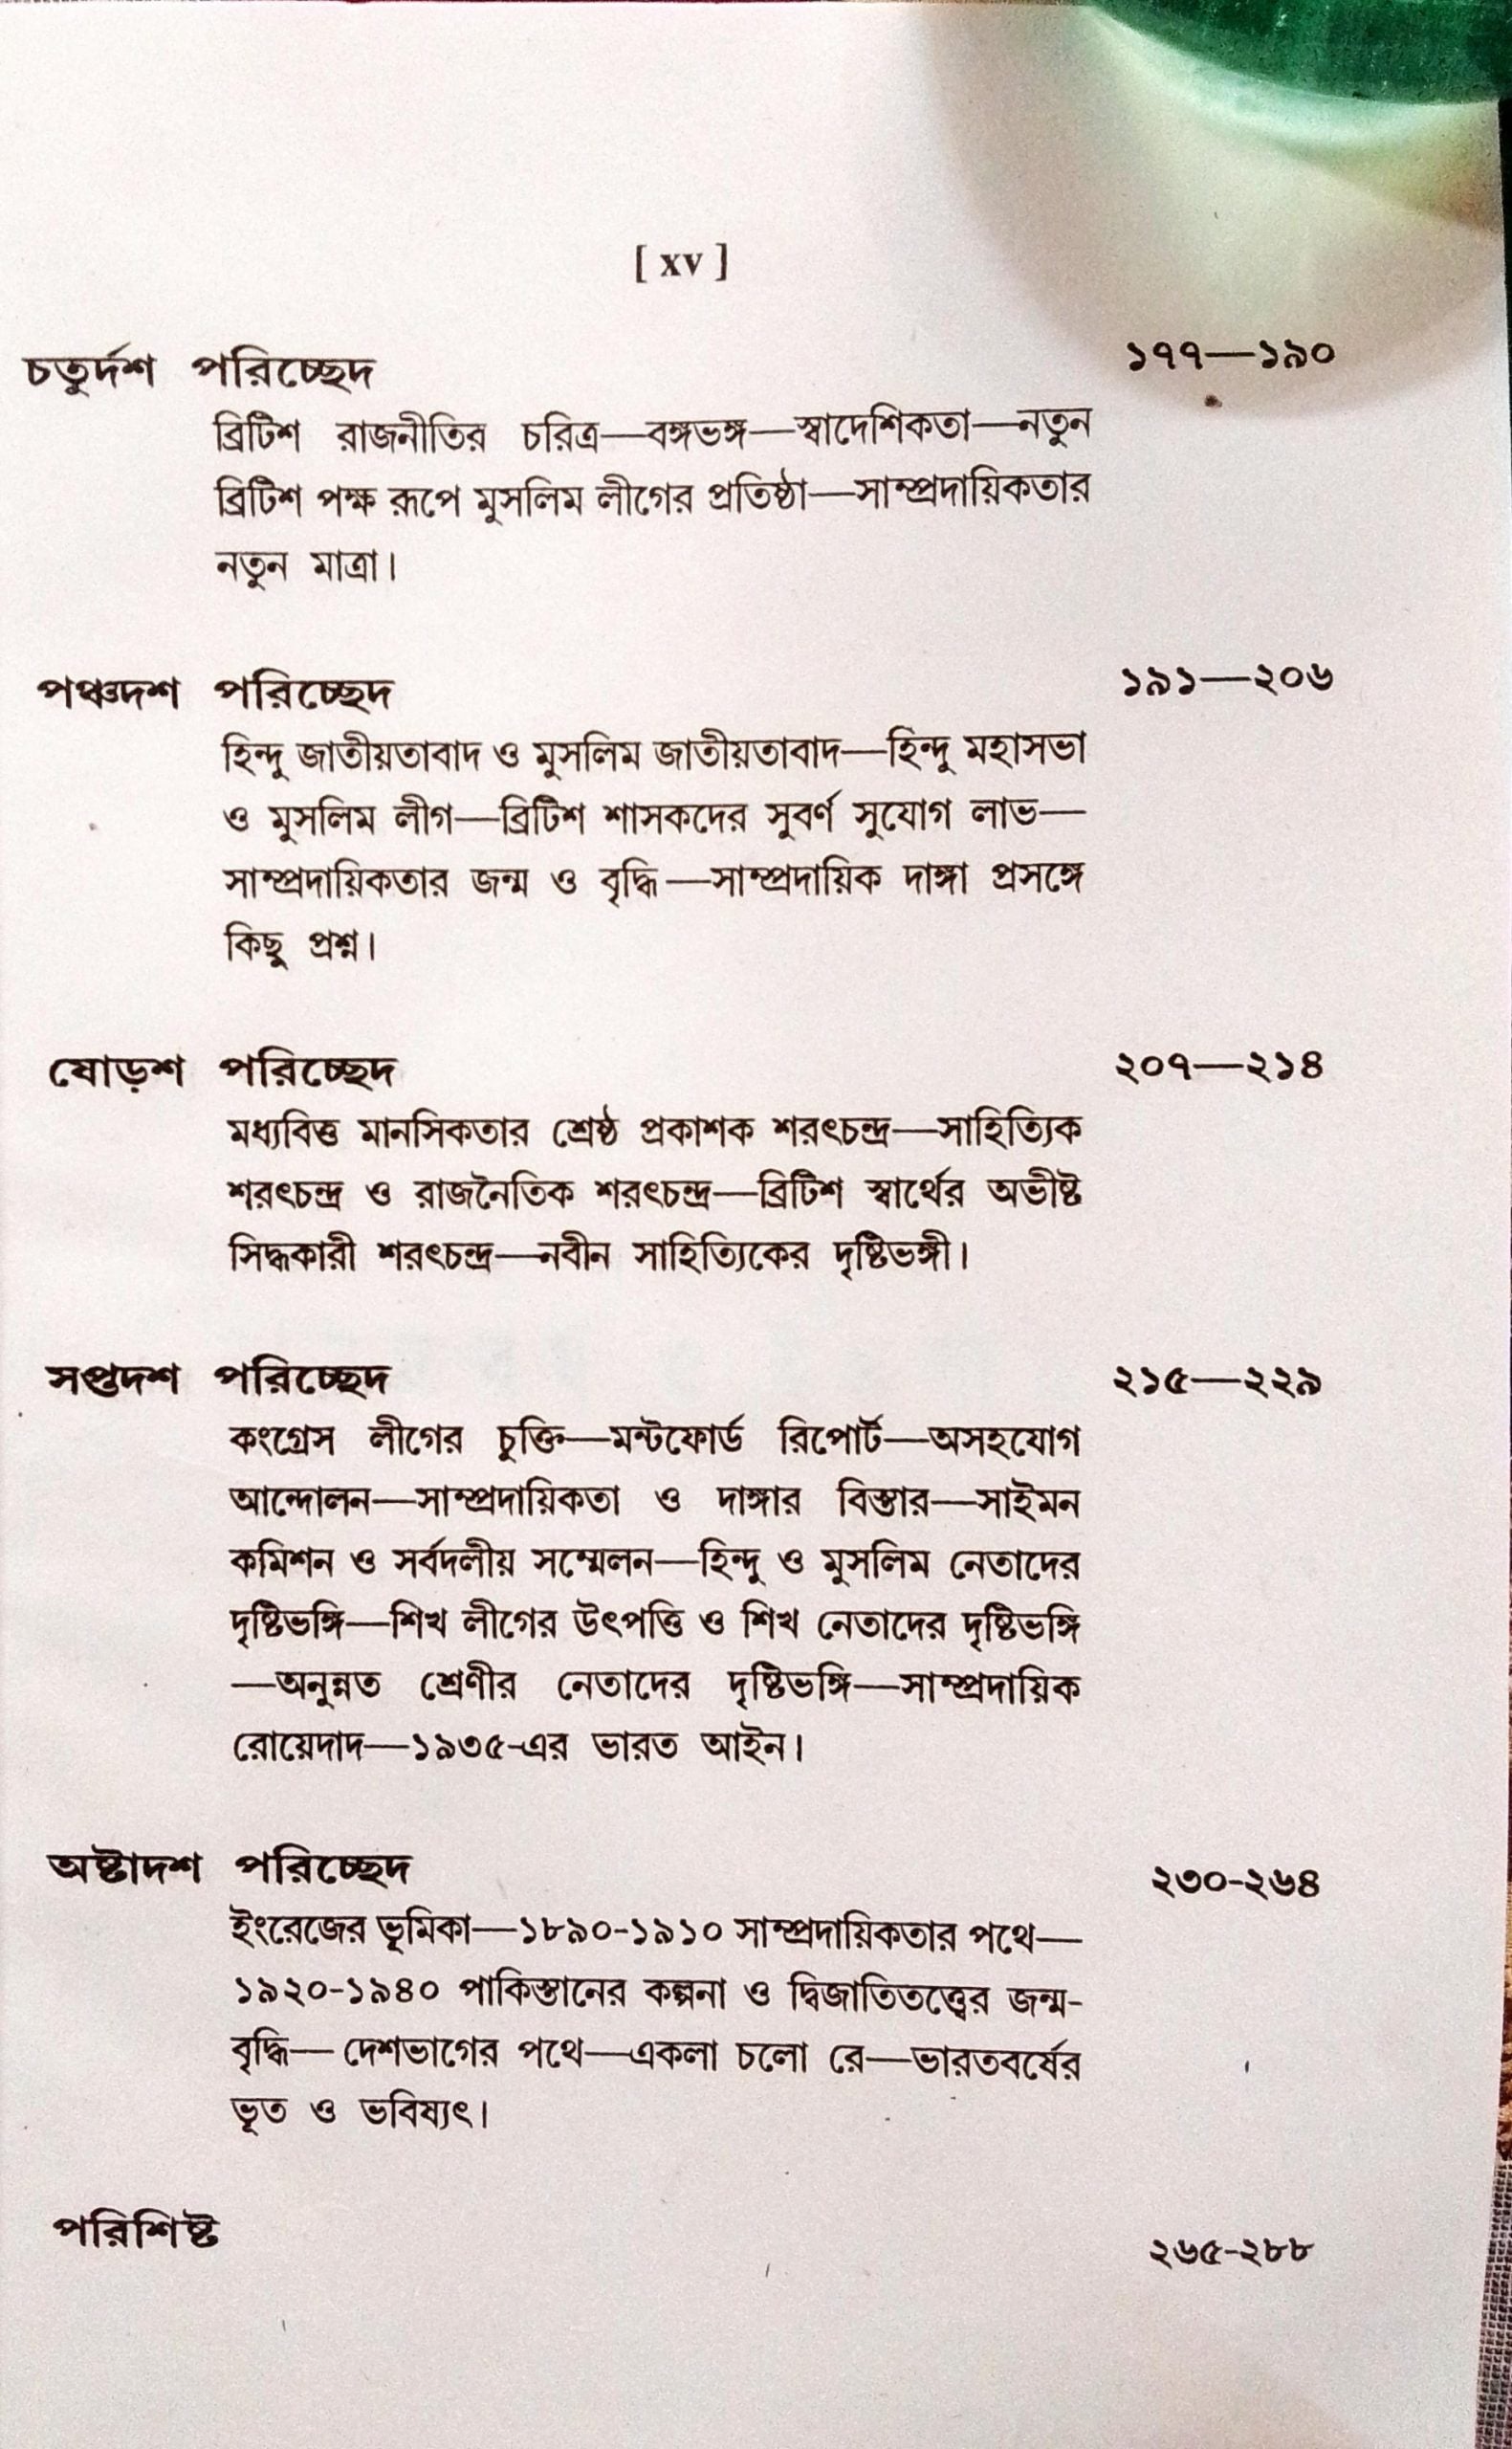 [ xv ]
চতুর্দশ পরিচ্ছেদ ১৭৭—১৯০
ব্রিটিশ রাজনীতির চরিত্র—বঙ্গভঙ্গ—স্বাদেশিকতা—নতুন
ব্রিটিশ পক্ষ রূপে মুসলিম লীগের প্রতিষ্ঠা—সাম্প্রদায়িকতার
নতুন মাত্রা।
পঞ্চদশ পরিচ্ছেদ ১৯১—২০৬
হিন্দু জাতীয়তাবাদ ও মুসলিম জাতীয়তাবাদ—হিন্দু মহাসভা
ও মুসলিম লীগ—ব্রিটিশ শাসকদের সুবর্ণ সুযোগ লাভ—
সাম্প্রদায়িকতার জন্ম ও বৃদ্ধি—সাম্প্রদায়িক দাঙ্গা প্রসঙ্গে
কিছু প্রশ্ন।
ষোড়শ পরিচ্ছেদ ২০৭—২১৪
মধ্যবিত্ত মানসিকতার শ্রেষ্ঠ প্রকাশক শরৎচন্দ্র—সাহিত্যিক
শরৎচন্দ্র ও রাজনৈতিক শরৎচন্দ্র—ব্রিটিশ স্বার্থের অভীষ্ট
সিদ্ধকারী শরৎচন্দ্র—নবীন সাহিত্যিকের দৃষ্টিভঙ্গী।
সপ্তদশ পরিচ্ছেদ ২১৫—২২৯
কংগ্রেস লীগের চুক্তি—মন্টফোর্ড রিপোর্ট—অসহযোগ
আন্দোলন—সাম্প্রদায়িকতা ও দাঙ্গার বিস্তার—সাইমন
কমিশন ও সর্বদলীয় সম্মেলন—হিন্দু ও মুসলিম নেতাদের
দৃষ্টিভঙ্গি—শিখ লীগের উৎপত্তি ও শিখ নেতাদের দৃষ্টিভঙ্গি
—অনুন্নত শ্রেণীর নেতাদের দৃষ্টিভঙ্গি—সাম্প্রদায়িক
রোয়েদাদ—১৯৩৫-এর ভারত আইন।
অষ্টাদশ পরিচ্ছেদ ২৩০-২৬৪
ইংরেজের ভূমিকা—১৮৯০-১৯১০ সাম্প্রদায়িকতার পথে—
১৯২০-১৯৪০ পাকিস্তানের কল্পনা ও দ্বিজাতিতত্ত্বের জন্ম-
বৃদ্ধি— দেশভাগের পথে—একলা চলো রে—ভারতবর্ষের
ভূত ও ভবিষ্যৎ।
পরিশিষ্ট ২৬৫-২৮৮